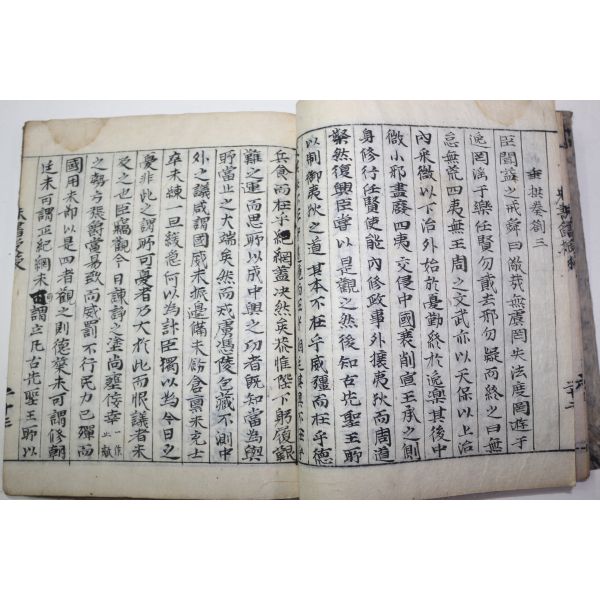 垂拱奏劄三
臣聞益之戒舜曰儆哉無虞罔失法度罔遊于
逸罔淫于樂任賢勿貳去邪勿疑而終之曰無
怠無荒四夷無王周之文武亦以天保以上治
內采微以下治外始於憂勤終於逸樂其後中
微小邪盡廢四夷交侵中國衰削宣王承之側
身修行任賢使能內修政事外攘夷狄而周道
粲然復興臣嘗以是觀之然後知古先聖王所
以制御夷狄之道其本不在乎威彊而在乎德
兵食而在乎紀綱蓋決然矣恭惟陛下躬復艱
難之運而思所以成中興之功者既知當為與
所當止之大端矣然而戎虜憑陵包藏不測中
外之議咸謂國威未振邊備未飭倉廩未充士
卒未練一旦緩急何以為計臣獨以為今日之
憂非此之謂所可憂者乃大於此而恨議者未
及之也臣竊觀今日諫諍之塗尚壅佞幸一作
之勢方張爵賞易致而威罰不行民力已殫而
國用未節以是四者觀之則德業未可謂修朝
廷未可謂正紀綱未可謂立凡古先聖王所以